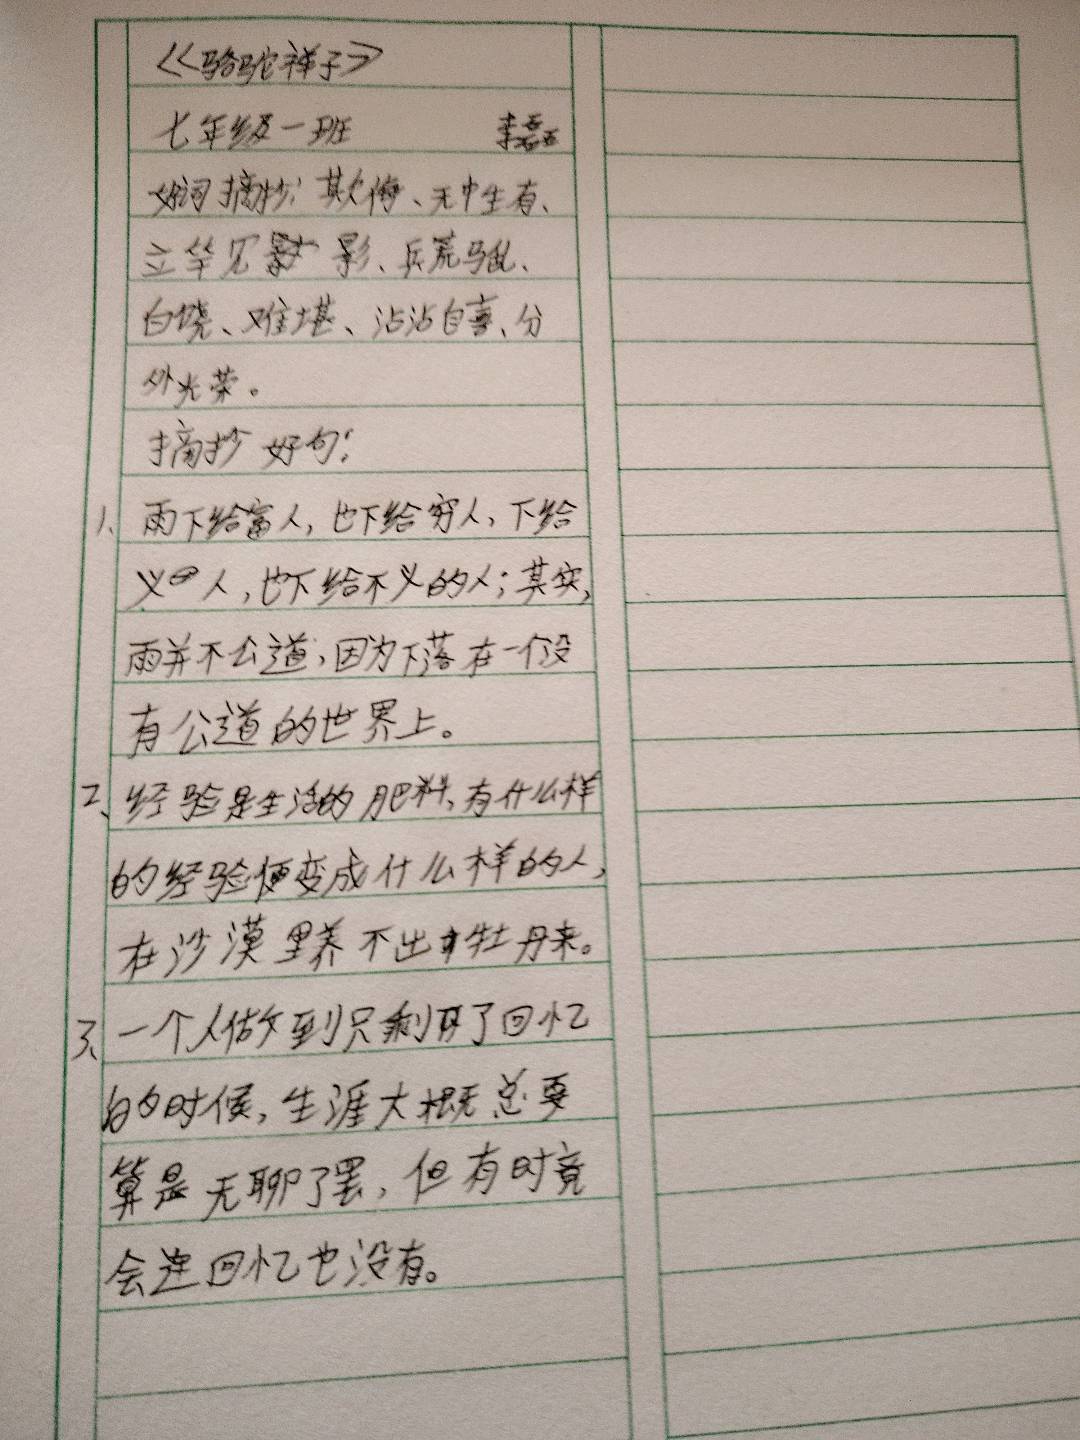 《骆驼祥子》
七年级一班 李
好词摘抄: 欺侮、无中生有、
立竿见影、兵荒马乱、
白饶、难堪、沾沾自喜、分
外光荣。
摘抄好句:
1、雨下给富人,也下给穷人,下给
义的人,也下给不义的人;其实,
雨并不公道,因为下落在一个没
有公道的世界上。
2、经验是生活的肥料,有什么样
的经验便变成什么样的人,
在沙漠里养不出牡丹来。
3、一个人做到只剩了回忆
的时候,生涯大概总要
算是无聊了罢,但有时竟
会连回忆也没有。